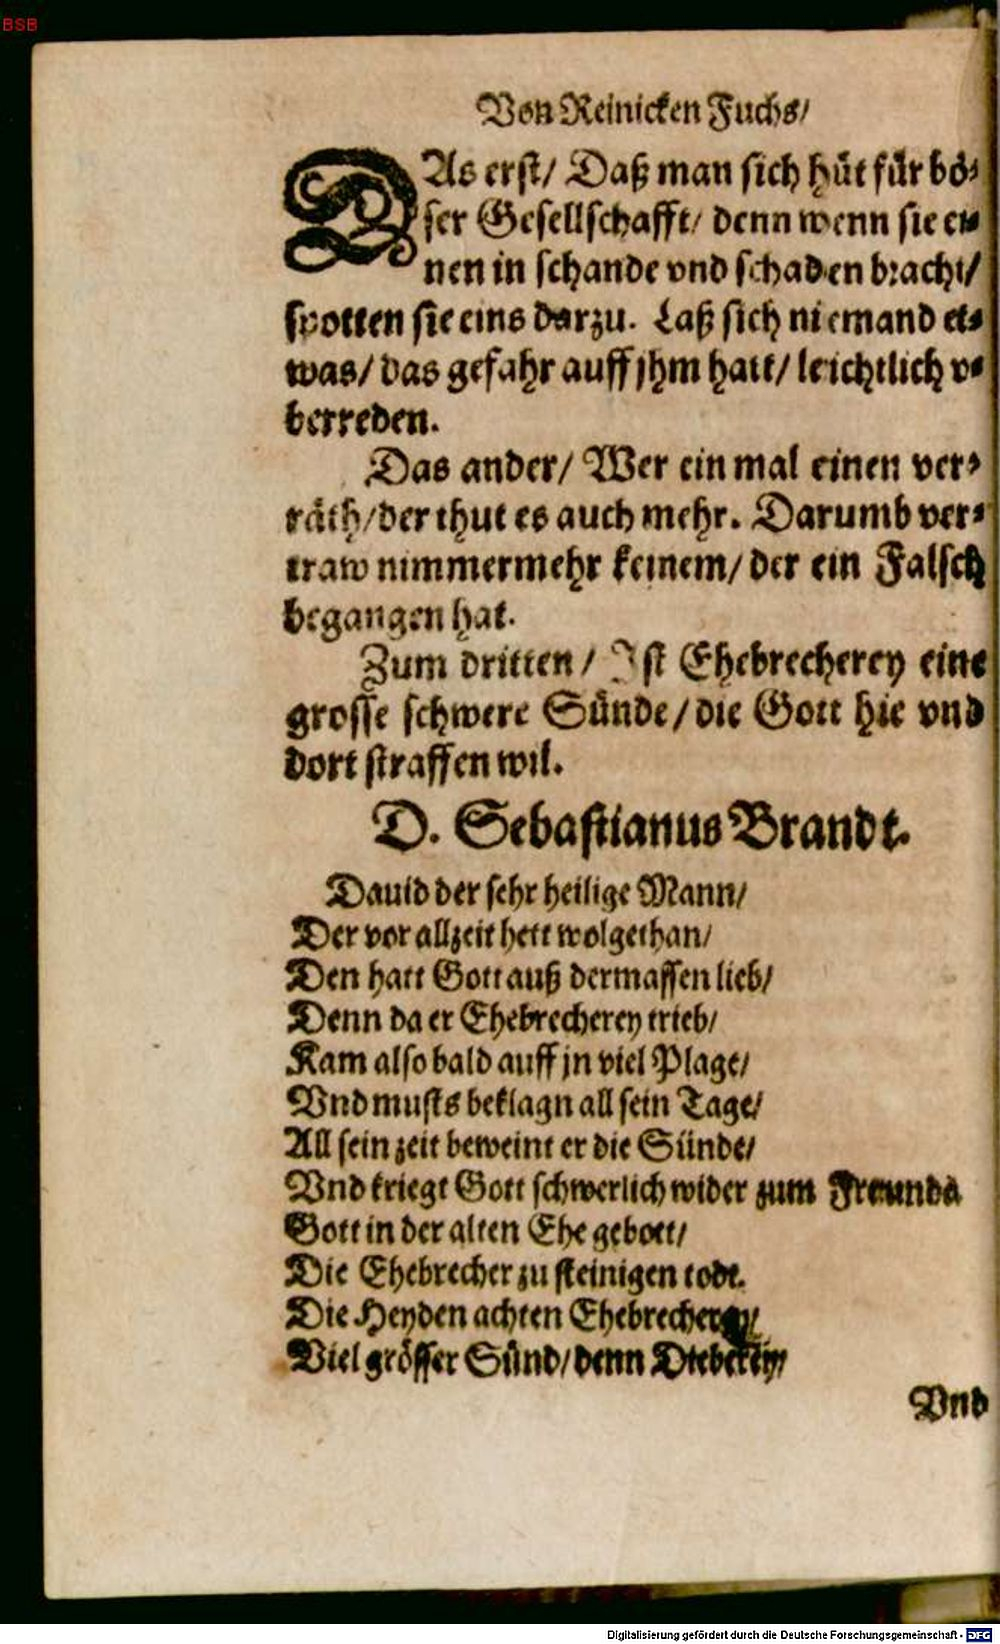 BSB
Von Reinicken Fuchs/
DAs erst/ Daß man sich hüt für bö-
ser Gesellschafft/ denn wenn sie ei-
nen in schande vnd schaden bracht/
spotten sie eins darzu. Laß sich niemand et-
was/ das gefahr auff jhm hatt/ leichtlich v-
berreden.
Das ander/ Wer ein mal einen ver-
räth/ der thut es auch mehr. Darumb ver-
traw nimmermehr keinem/ der ein Falsch
begangen hat.
Zum dritten/ Ist Ehebrecherey eine
grosse schwere Sünde/ die Gott hie vnd
dort straffen wil.
D. Sebastianus Brandt.
Dauid der sehr heilige Mann/
Der vor allzeit hett wolgethan/
Den hatt Gott auß dermassen lieb/
Denn da er Ehebrecherey trieb/
Kam also bald auff jn viel Plage/
Vnd musts beklagn all sein Tage/
All sein zeit beweint er die Sünde/
Vnd kriegt Gott schwerlich wider zum Freunde
Gott in der alten Ehe gebott/
Die Ehebrecher zu steinigen todt.
Die Heyden achten Ehebrecherey/
Viel grösser Sünd/ denn Dieberey/
Vnd
Digitalisierung gefördert durch die Deutsche Forschungsgemeinschaft - DFG